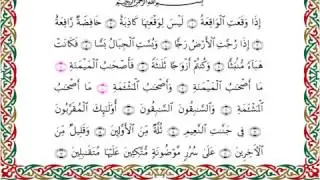 بِسْمِ اللَّهِ الرَّحْمَٰنِ الرَّحِيمِ
إِذَا وَقَعَتِ الْوَاقِعَةُ ۝ لَيْسَ لِوَقْعَتِهَا كَاذِبَةٌ ۝ خَافِضَةٌ رَّافِعَةٌ
۝ إِذَا رُجَّتِ الْأَرْضُ رَجًّا ۝ وَبُسَّتِ الْجِبَالُ بَسًّا ۝ فَكَانَتْ
هَبَاءً مُّنبَثًّا ۝ وَكُنتُمْ أَزْوَاجًا ثَلَاثَةً ۝ فَأَصْحَابُ الْمَيْمَنَةِ
مَا أَصْحَابُ الْمَيْمَنَةِ ۝ وَأَصْحَابُ الْمَشْأَمَةِ مَا أَصْحَابُ
الْمَشْأَمَةِ ۝ وَالسَّابِقُونَ السَّابِقُونَ ۝ أُولَٰئِكَ الْمُقَرَّبُونَ
۝ فِي جَنَّاتِ النَّعِيمِ ۝ ثُلَّةٌ مِّنَ الْأَوَّلِينَ ۝ وَقَلِيلٌ مِّنَ
الْآخِرِينَ ۝ عَلَىٰ سُرُرٍ مَّوْضُونَةٍ ۝ مُّتَّكِئِينَ عَلَيْهَا مُتَقَابِلِينَ ۝